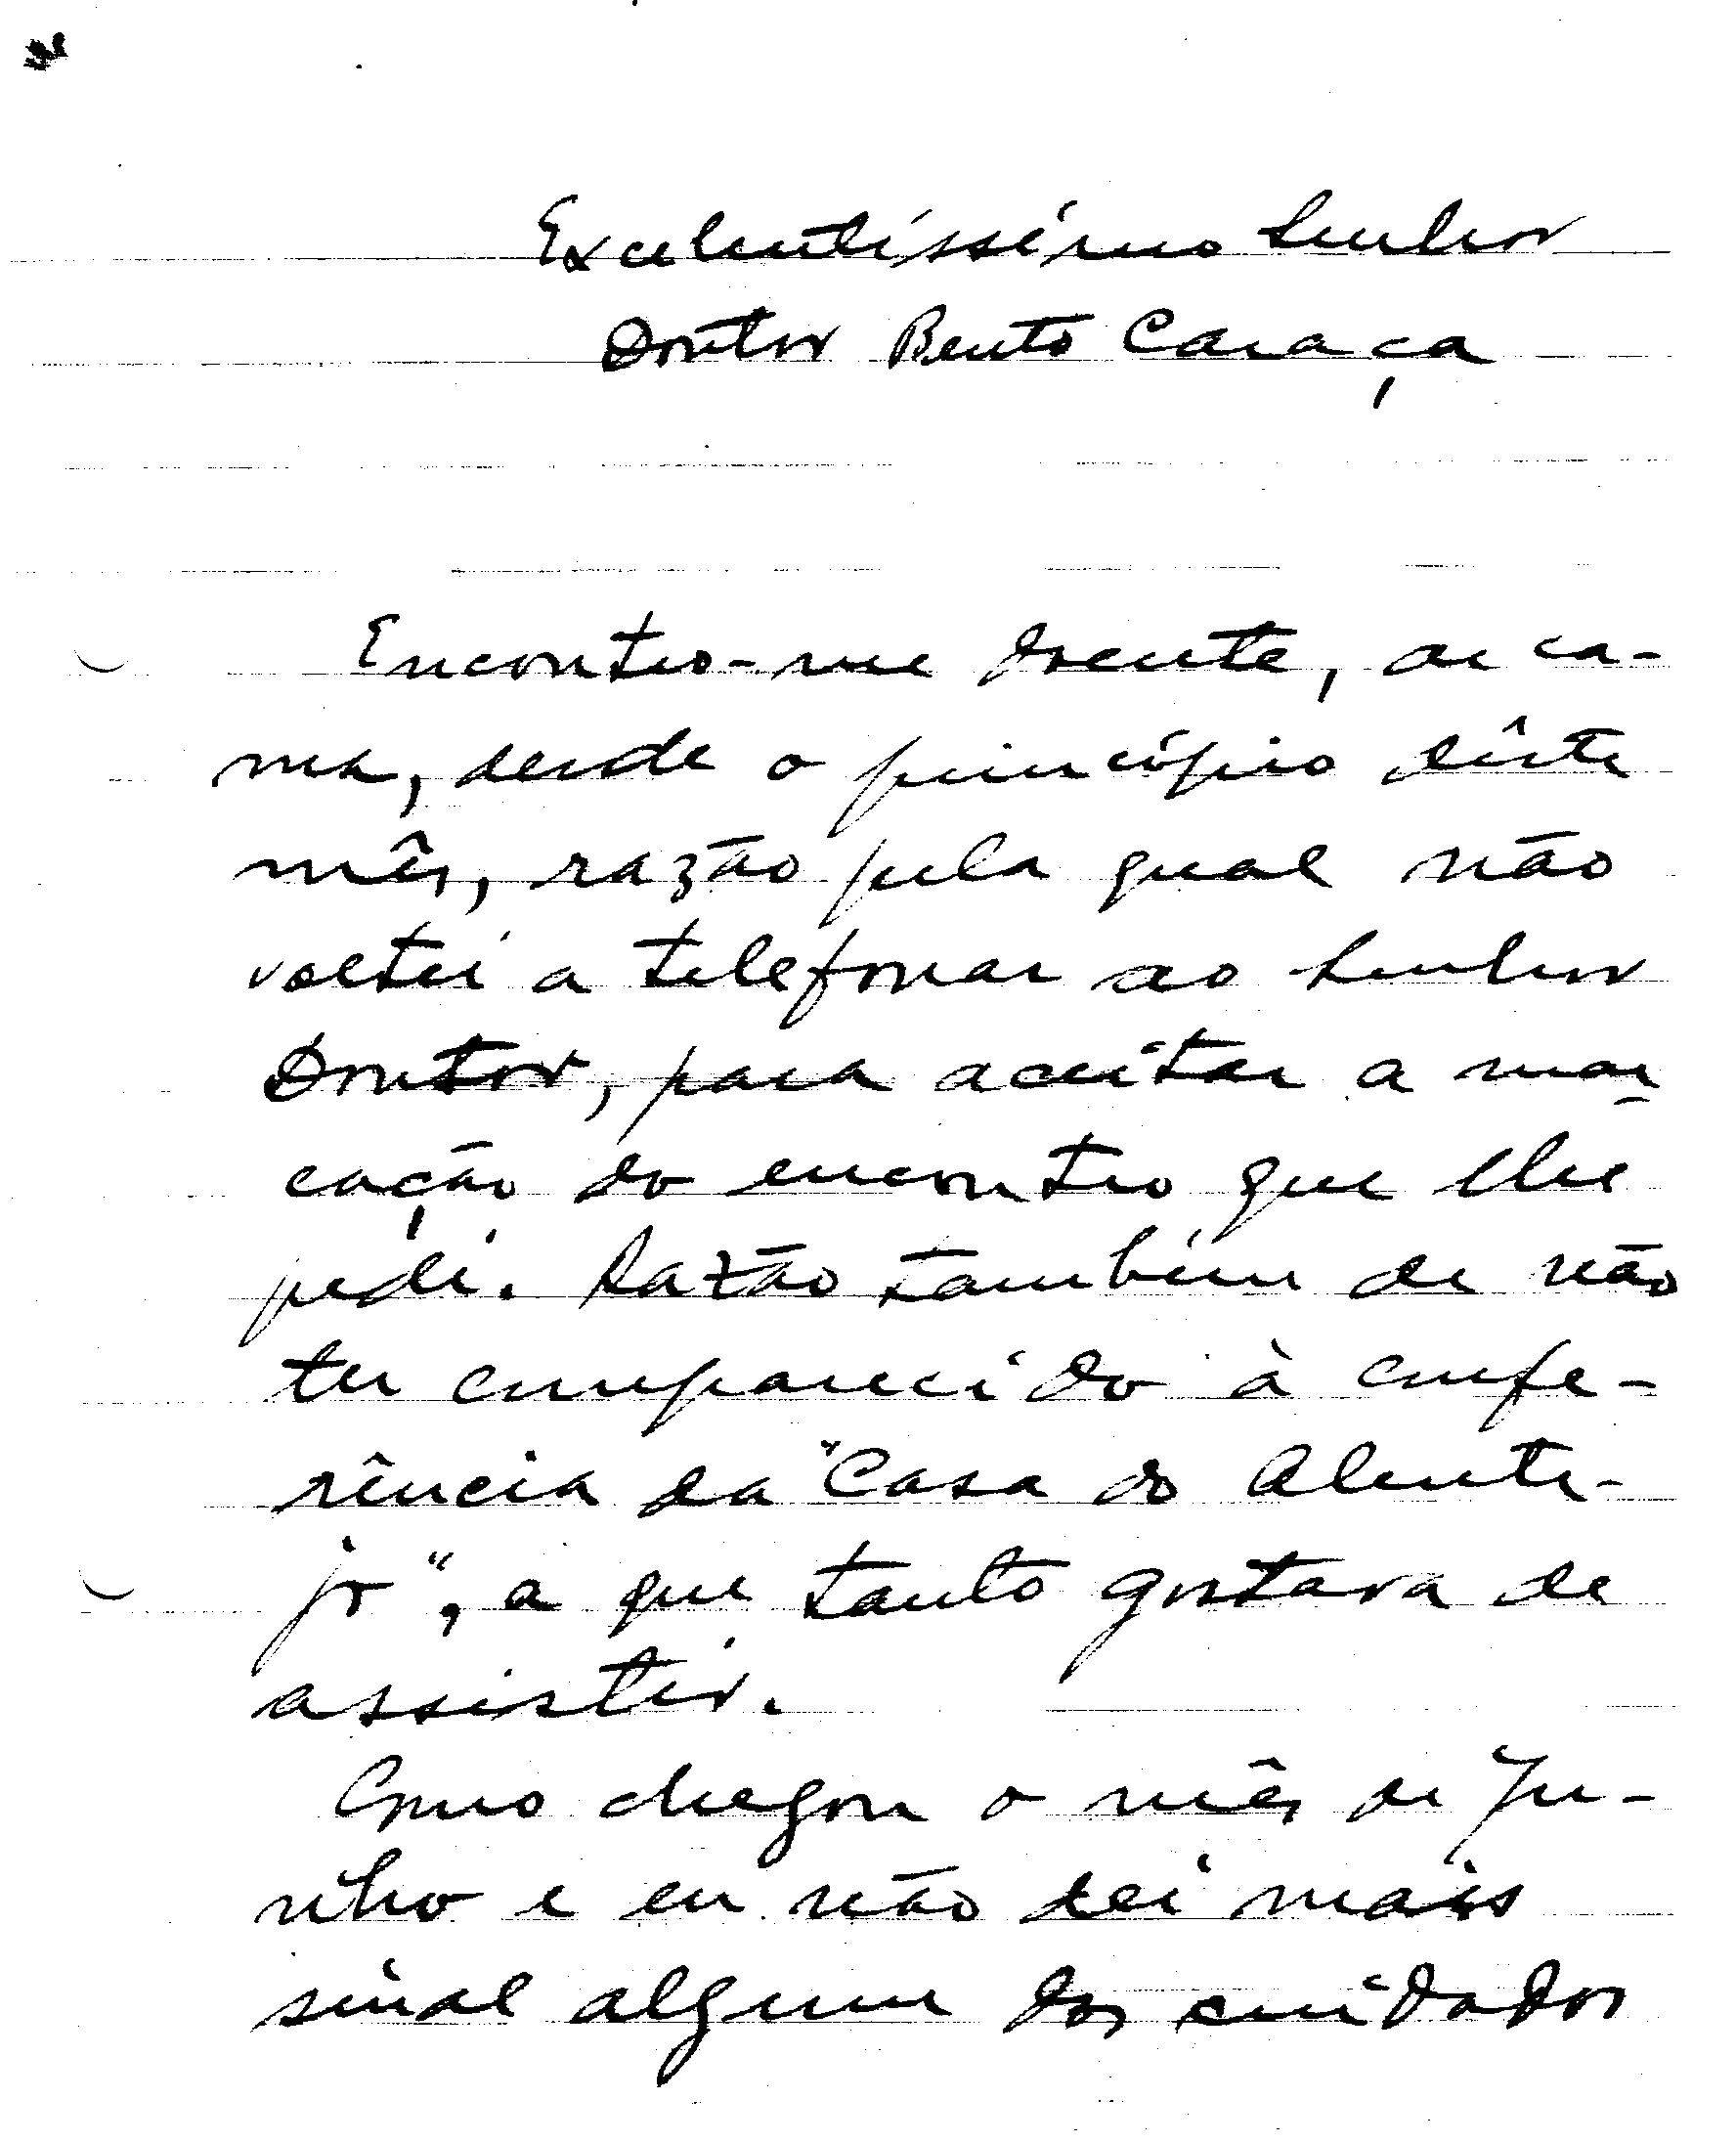 Excelentíssimo Senhor
Doutor Bento Caraça
Encontro-me doente, de ca-
ma, desde o princípio dêste
mês, razão pela qual não
voltei a telefonar ao Senhor
Doutor, para aceitar a mar-
cação do encontro que lhe
pedi. Razão também de não
ter comparecido à confe-
rência da "Casa do Alente-
jo", a que tanto gostava de
assistir.
Como chegou o mês de Ju-
nho e eu não dei mais
sinal algum dos cuidados